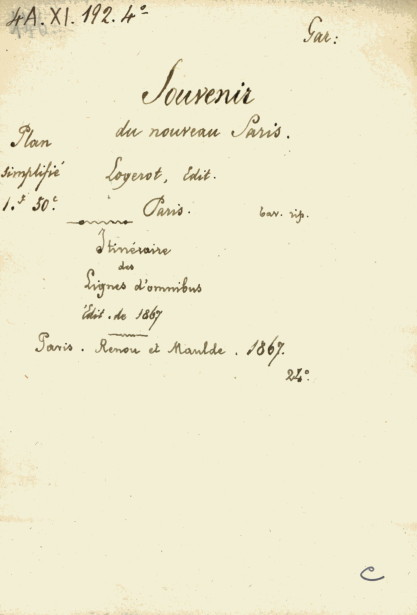 4A. XI. 192. 4º
Gar:
Souvenir
du nouveau Paris.
Plan
simplifié
1.f 50c.
Logerot, Edit.
Paris.
Itinéraire
des
Lignes d'omnibus
Edit. de 1867
Paris. Renou et Maulde. 1867.
24º.
C